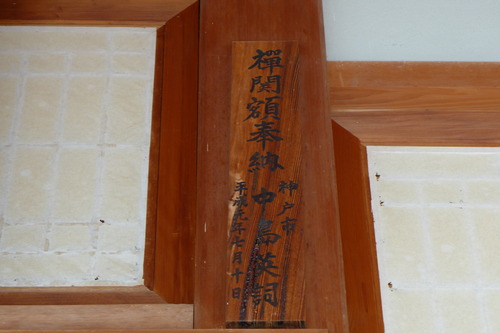 禪関額奉納 中島英詞
神戸市
平成元年七月十日